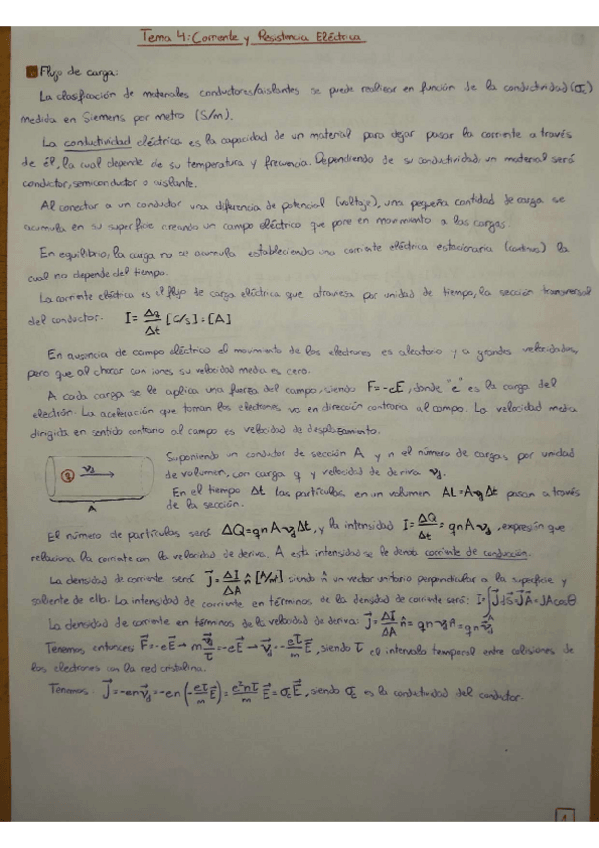 Tema 4: Corriente y Resistencia Eléctrica
Flujo de carga:
La clasificación de materiales conductores/aislantes se puede realizar en función de la conductividad (σc)
medida en Siemens por metro (S/m).
La conductividad eléctrica es la capacidad de un material para dejar pasar la corriente a través
de él, la cual depende de su temperatura y frecuencia. Dependiendo de su conductividad, un material será
conductor, semiconductor o aislante.
Al conectar a un conductor una diferencia de potencial (voltaje), una pequeña cantidad de carga se
acumula en su superficie creando un campo eléctrico que pone en movimiento a las cargas.
En equilibrio, la carga no se acumula estableciendo una corriente eléctrica estacionaria (continua) la
cual no depende del tiempo.
La corriente eléctrica es el flujo de carga eléctrica que atraviesa por unidad de tiempo, la sección transversal
del conductor. I = Δq/Δt [C/s] = [A]
En ausencia de campo eléctrico el movimiento de los electrones es aleatorio y a grandes velocidades,
pero que al chocar con iones su velocidad media es cero.
A cada carga se le aplica una fuerza del campo, siendo F=-eE, donde "e" es la carga del
electrón. La aceleración que toman los electrones va en dirección contraria al campo. La velocidad media
dirigida en sentido contrario al campo es velocidad de desplazamiento.
Suponiendo un conductor de sección A y n el número de cargas por unidad
de volumen, con carga q y velocidad de deriva vd.
En el tiempo Δt las partículas en un volumen AL=A vd Δt pasan a través
de la sección.
q vd
A
El número de partículas será ΔQ=qnA vd Δt, y la intensidad I = ΔQ/Δt = qnA vd, expresión que
relaciona la corriente con la velocidad de deriva. A esta intensidad se le denota corriente de conducción.
La densidad de corriente será J⃗ = ΔI/ΔA n̂ [A/m²] siendo n̂ un vector unitario perpendicular a la superficie y
saliente de ella. La intensidad de corriente en términos de la densidad de corriente será: I=∫J⃗ds⃗=J⃗A⃗=JAcosθ
La densidad de corriente en términos de la velocidad de deriva: J⃗ = ΔI/ΔA n̂ = qn vd n̂ = qn v⃗d
Tenemos entonces F⃗=-eE⃗ → m v⃗d/τ = -eE⃗ → v⃗d = -eτ/m E⃗, siendo τ el intervalo temporal entre colisiones de
los electrones con la red cristalina.
Tenemos: J⃗=-en v⃗d=-en(-eτ/m E⃗) = e²nτ/m E⃗ = σc E⃗, siendo σc es la conductividad del conductor.
1